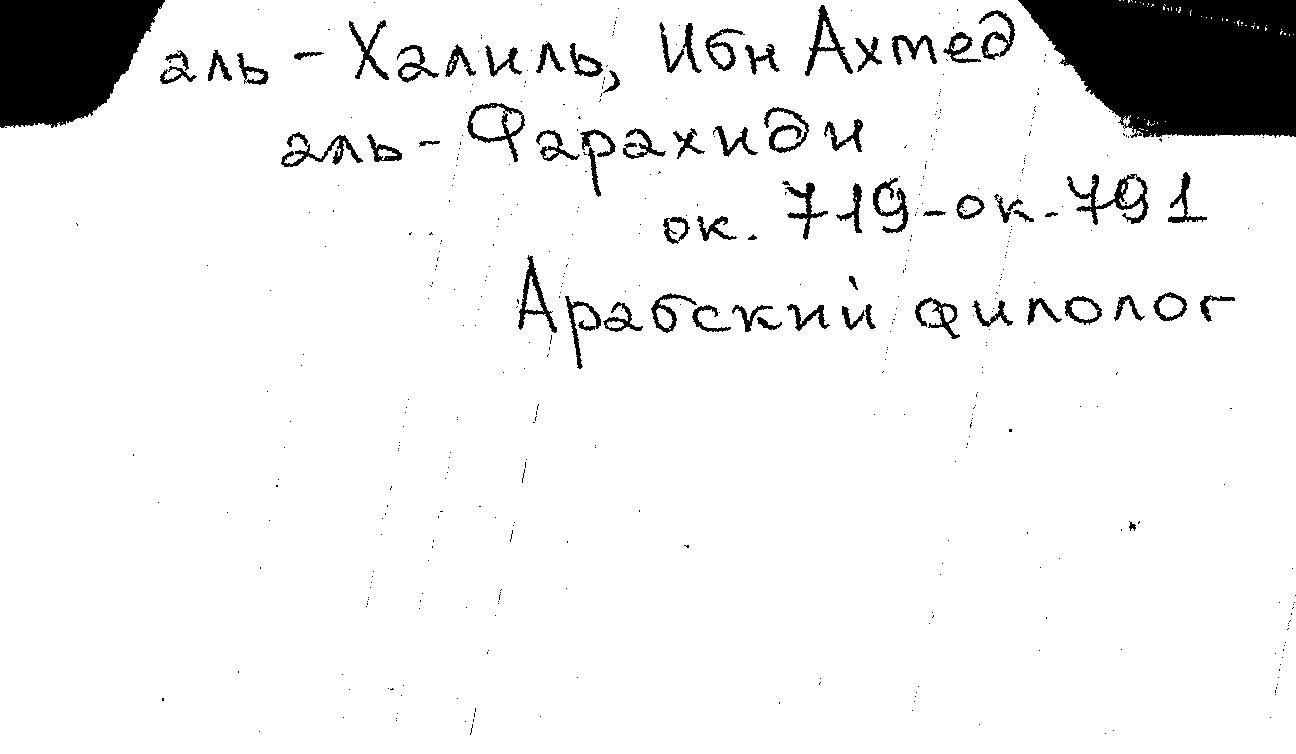 аль-Халиль, Ибн Ахмед
аль-Фарахиди
ок. 719-ок. 791
Арабский филолог